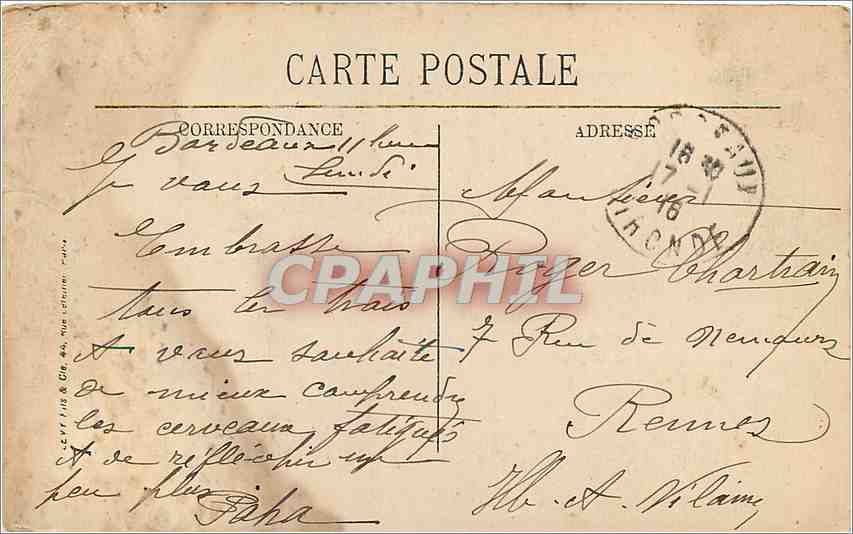 CARTE POSTALE
CORRESPONDANCE
Bordeaux 11 heure
Lundi
Je vous
Embrasse
tous les trois
et vous souhaite
de mieux comprendre
les cerveaux fatigués
et de réfléchir un
peu plus
Papa
ADRESSE
BORDEAUX
18 30
17 - 1
16
GIRONDE
Monsieur
Roger Chartrain
7 Rue de Nemours
Rennes
Ille-et-Vilaine
LEVY FILS & Cie, 44, Rue Letellier, Paris
CPAPHIL